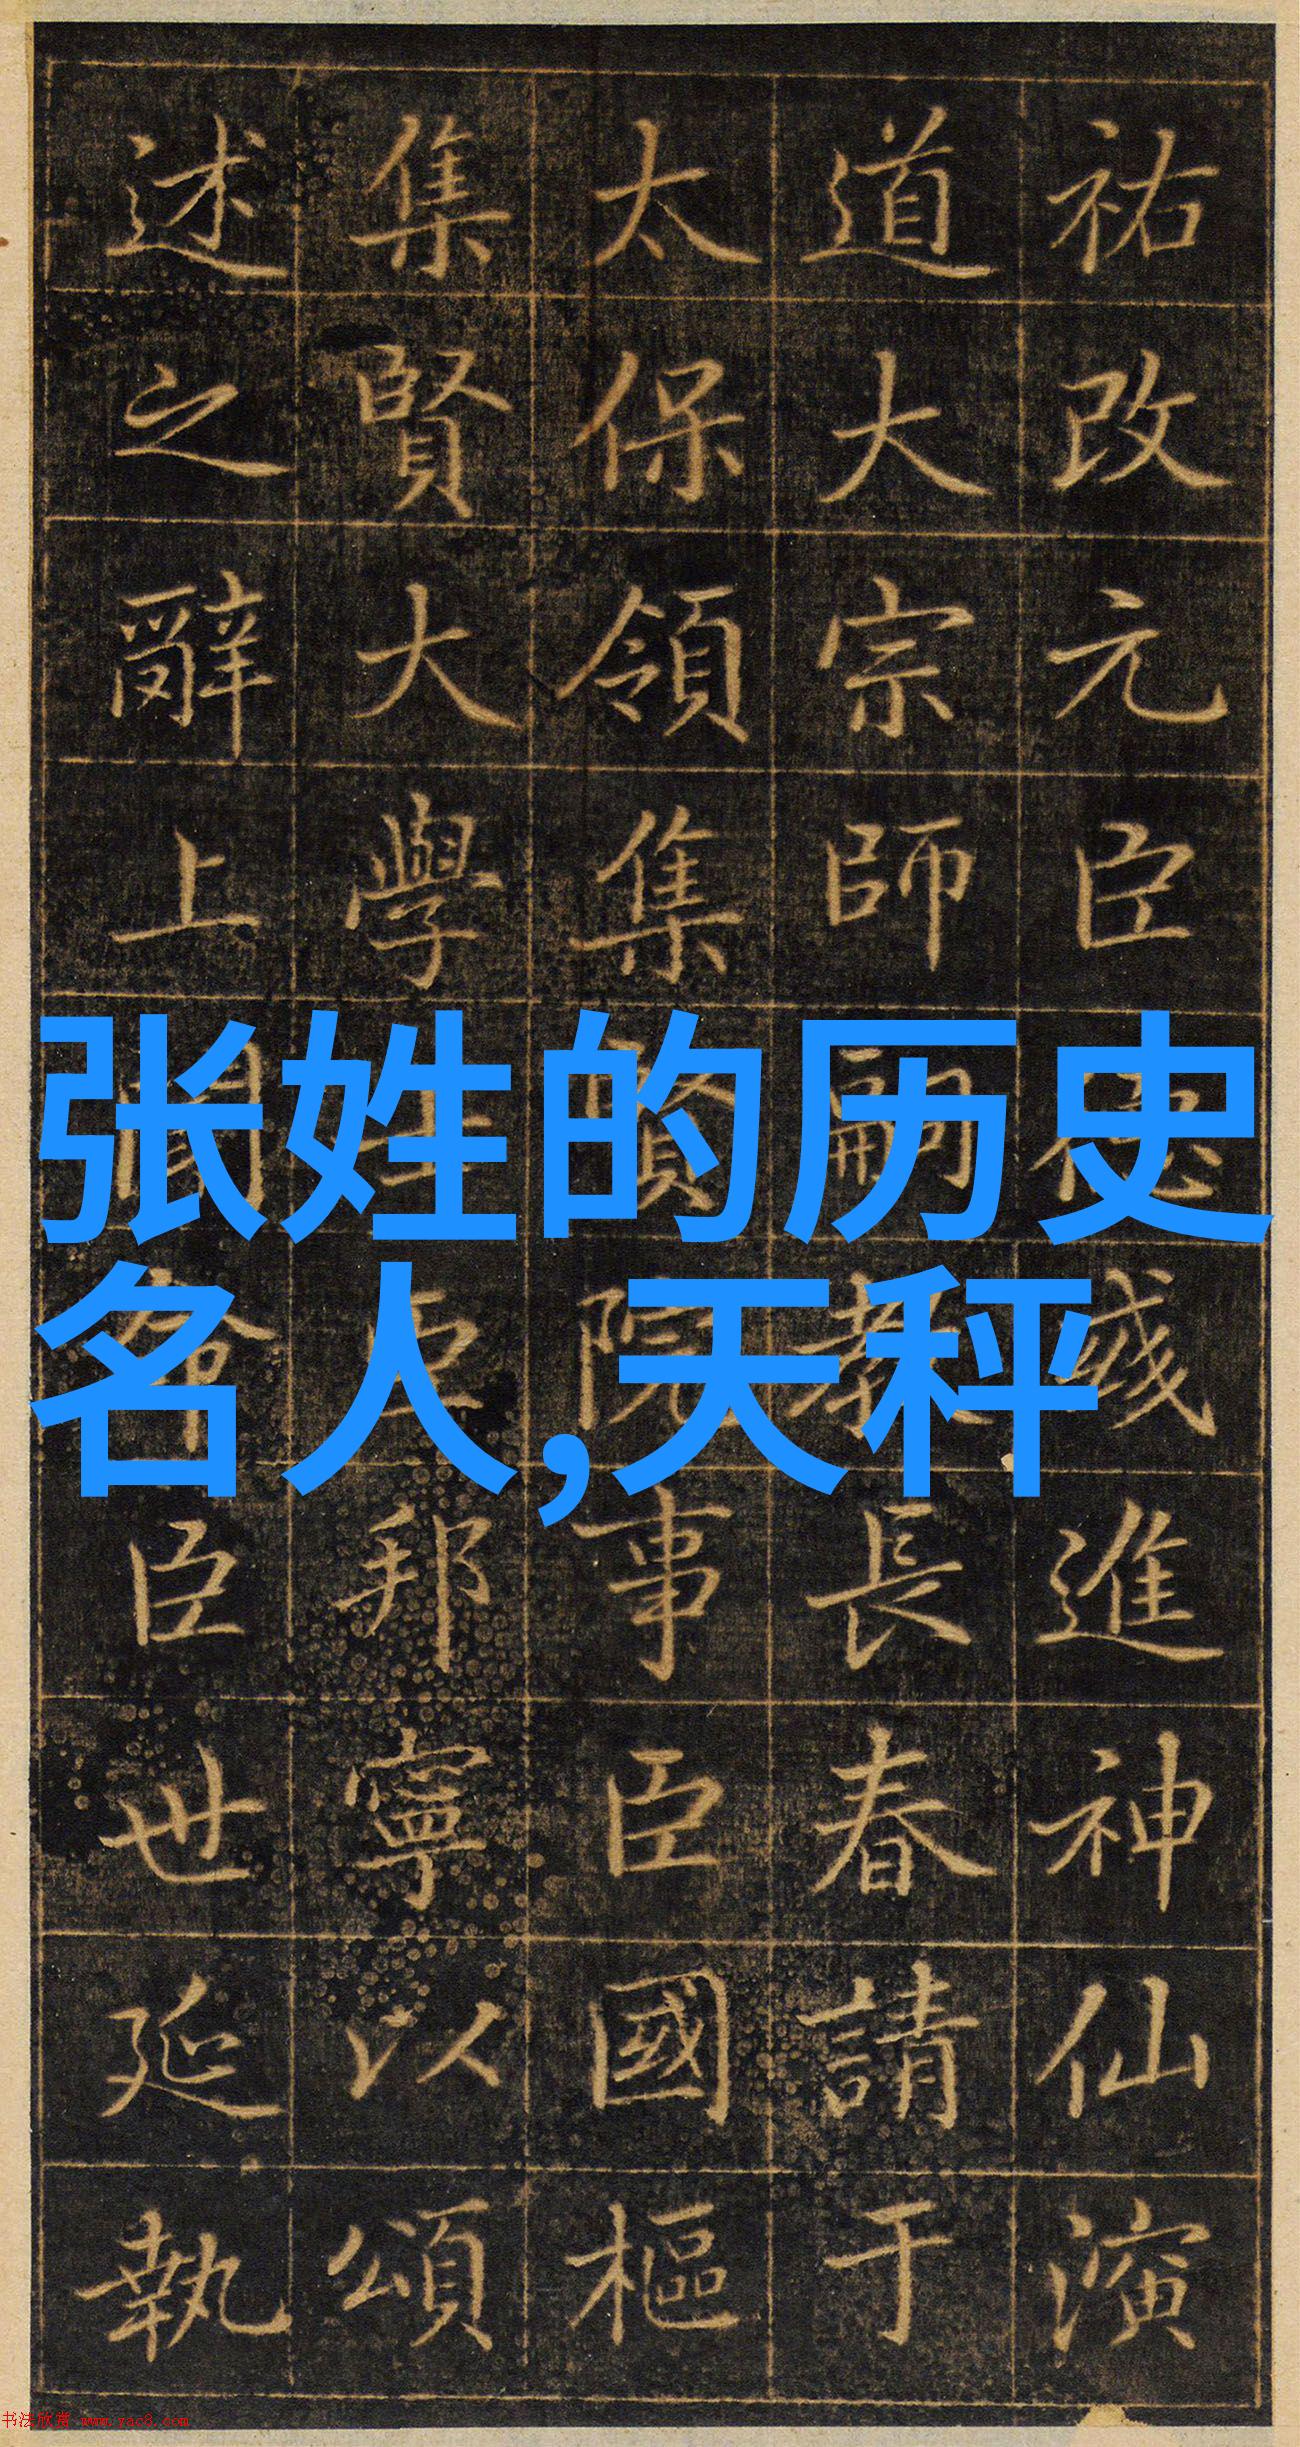 祐改元臣德彧進神仙演
道大宗師嗣教長春請于
太保領集賢院事臣國樞
集賢大學士臣邦寧以頌
述之辭上聞命臣世延執
张姓的历史
名人,天秤
书法欣赏 www.yac8.com